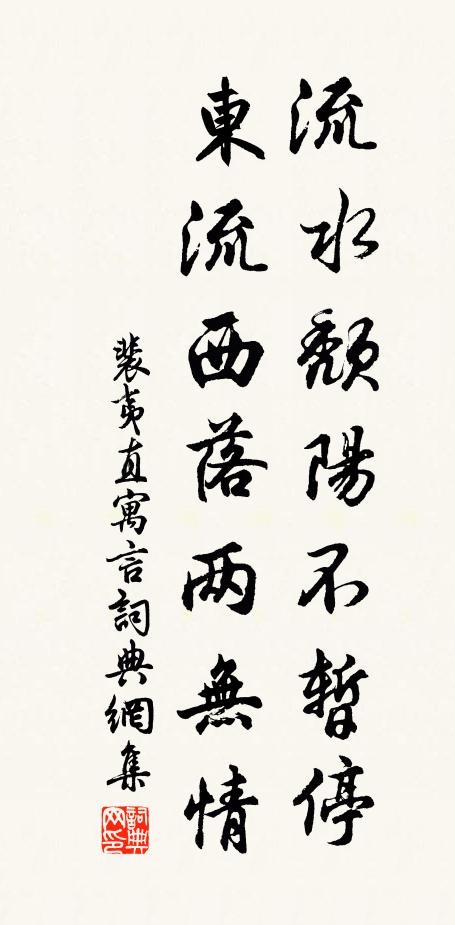 流水頹陽不暫停
東流西落两無情
裴夷直寓言詞典網集
詞典网印